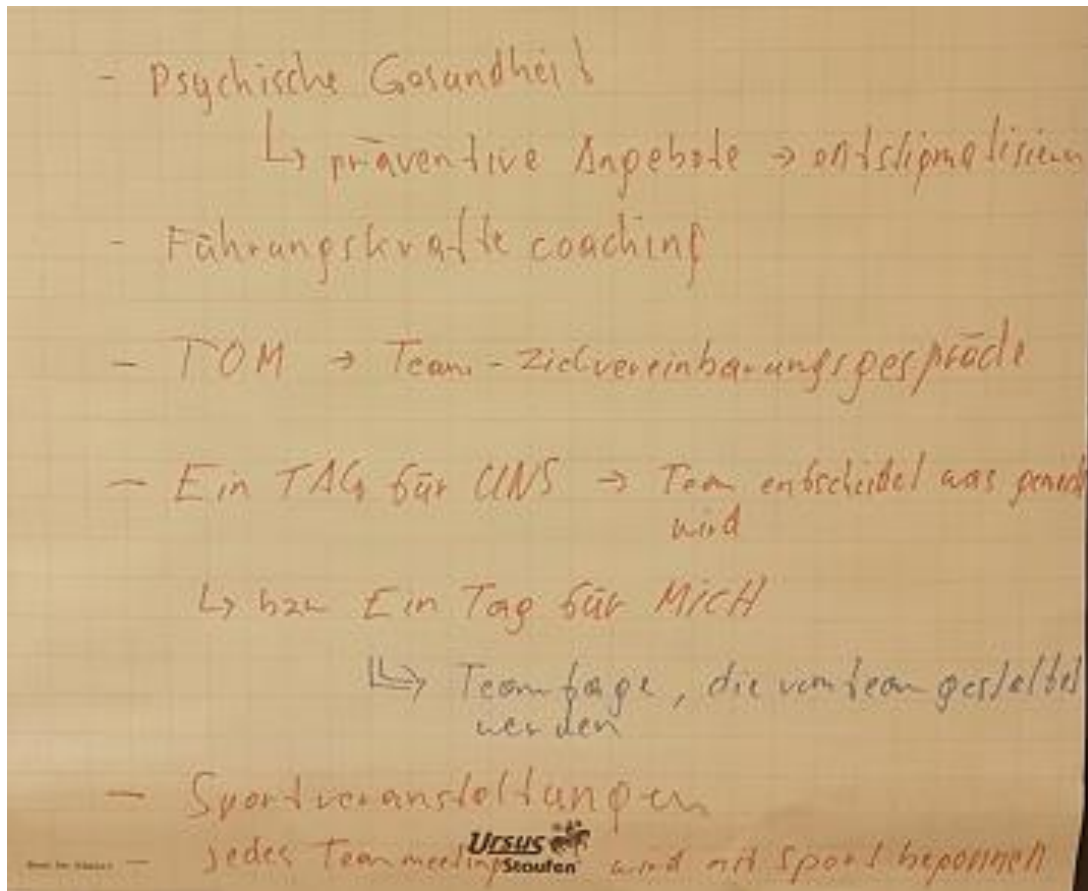 - Psychische Gesundheit
↳ präventive Angebote → entstigmatisieren
- Führungskräfte coaching
- TOM → Team-Zielvereinbarungsgespräche
- Ein TAG für UNS → Team entscheidet was gemacht
wird
↳ bzw Ein Tag für MICH
↳ Teamtage, die vom Team gestaltet
werden
- Sportveranstaltungen
- jedes Teammeeting wird mit Sport begonnen
Ursus
Staufen